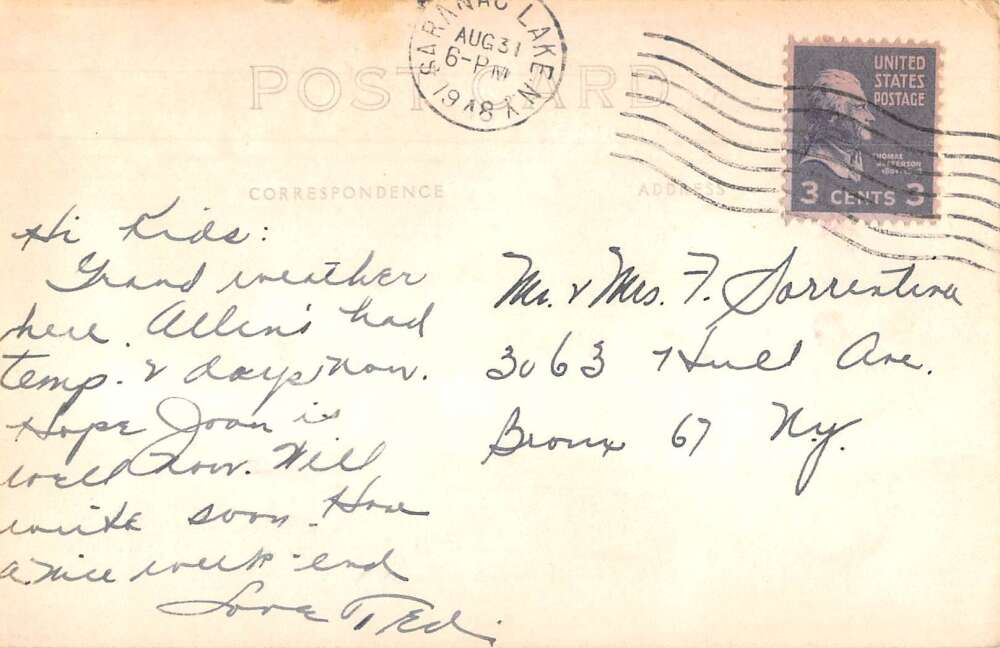 SARANAC LAKE N.Y.
AUG 31
6-PM
1948
UNITED
STATES
POSTAGE
THOMAS
JEFFERSON
3 CENTS 3
POST CARD
CORRESPONDENCE
ADDRESS
Hi Kids:
Grand weather
here. Allen's had
temp. 2 days now.
Hope Joan is
well now. Will
write soon. Have
a nice week-end
Love Ted.
Mr. & Mrs. F. Sorrentino
3063 Hull Ave.
Bronx 67 N.Y.